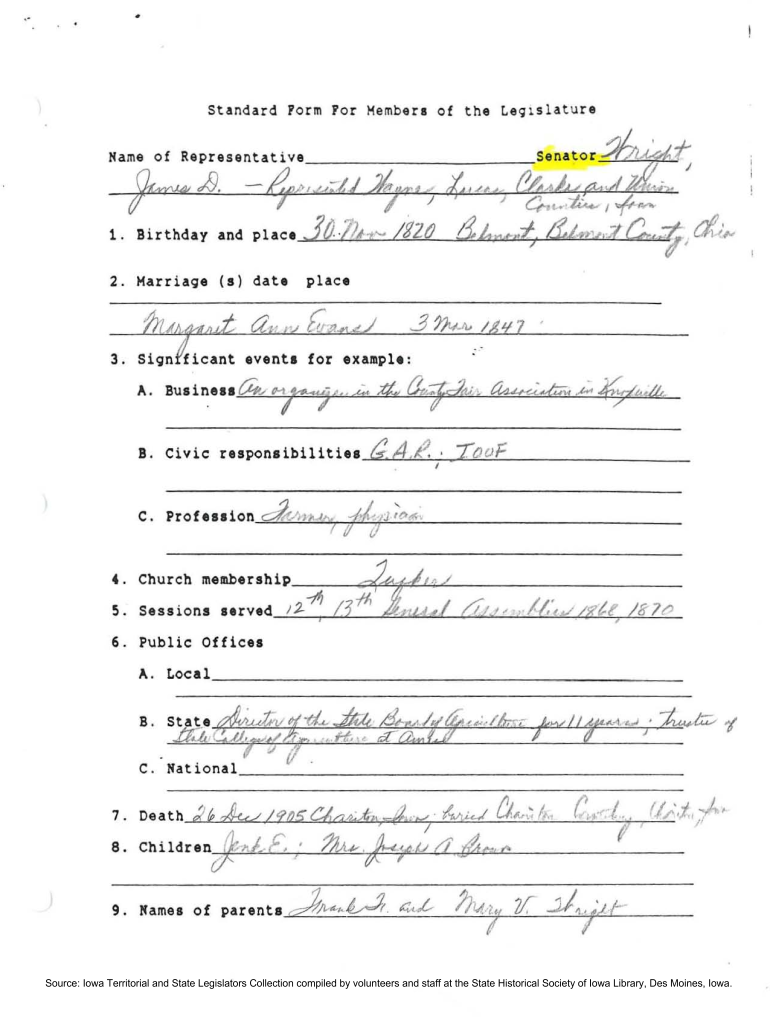 Standard Form For Members of the Legislature
Name of Representative Senator Wright,
James D. — Represented Wayne, Lucas, Clarke and Union
Counties, Iowa
1. Birthday and place 30 Nov 1820 Belmont, Belmont County, Ohio
2. Marriage (s) date place
Margaret Ann Evans 3 Mar 1847
3. Significant events for example:
A. Business An organizer in the County Fair Association in Knoxville
B. Civic responsibilities G.A.R.; IOOF
C. Profession Farmer, physician
4. Church membership
5. Sessions served 12th, 13th General Assemblies 1868, 1870
6. Public Offices
A. Local
B. State Director of the State Board of Agriculture for 11 years; trustee of
State College of Agriculture at Ames
C. National
7. Death 26 Dec 1905 Chariton, Iowa; buried Chariton Cemetery, Chariton, Iowa
8. Children E.; Mrs. Joseph A Brown
9. Names of parents Frank and Mary V. Wright
Source: Iowa Territorial and State Legislators Collection compiled by volunteers and staff at the State Historical Society of Iowa Library, Des Moines, Iowa.